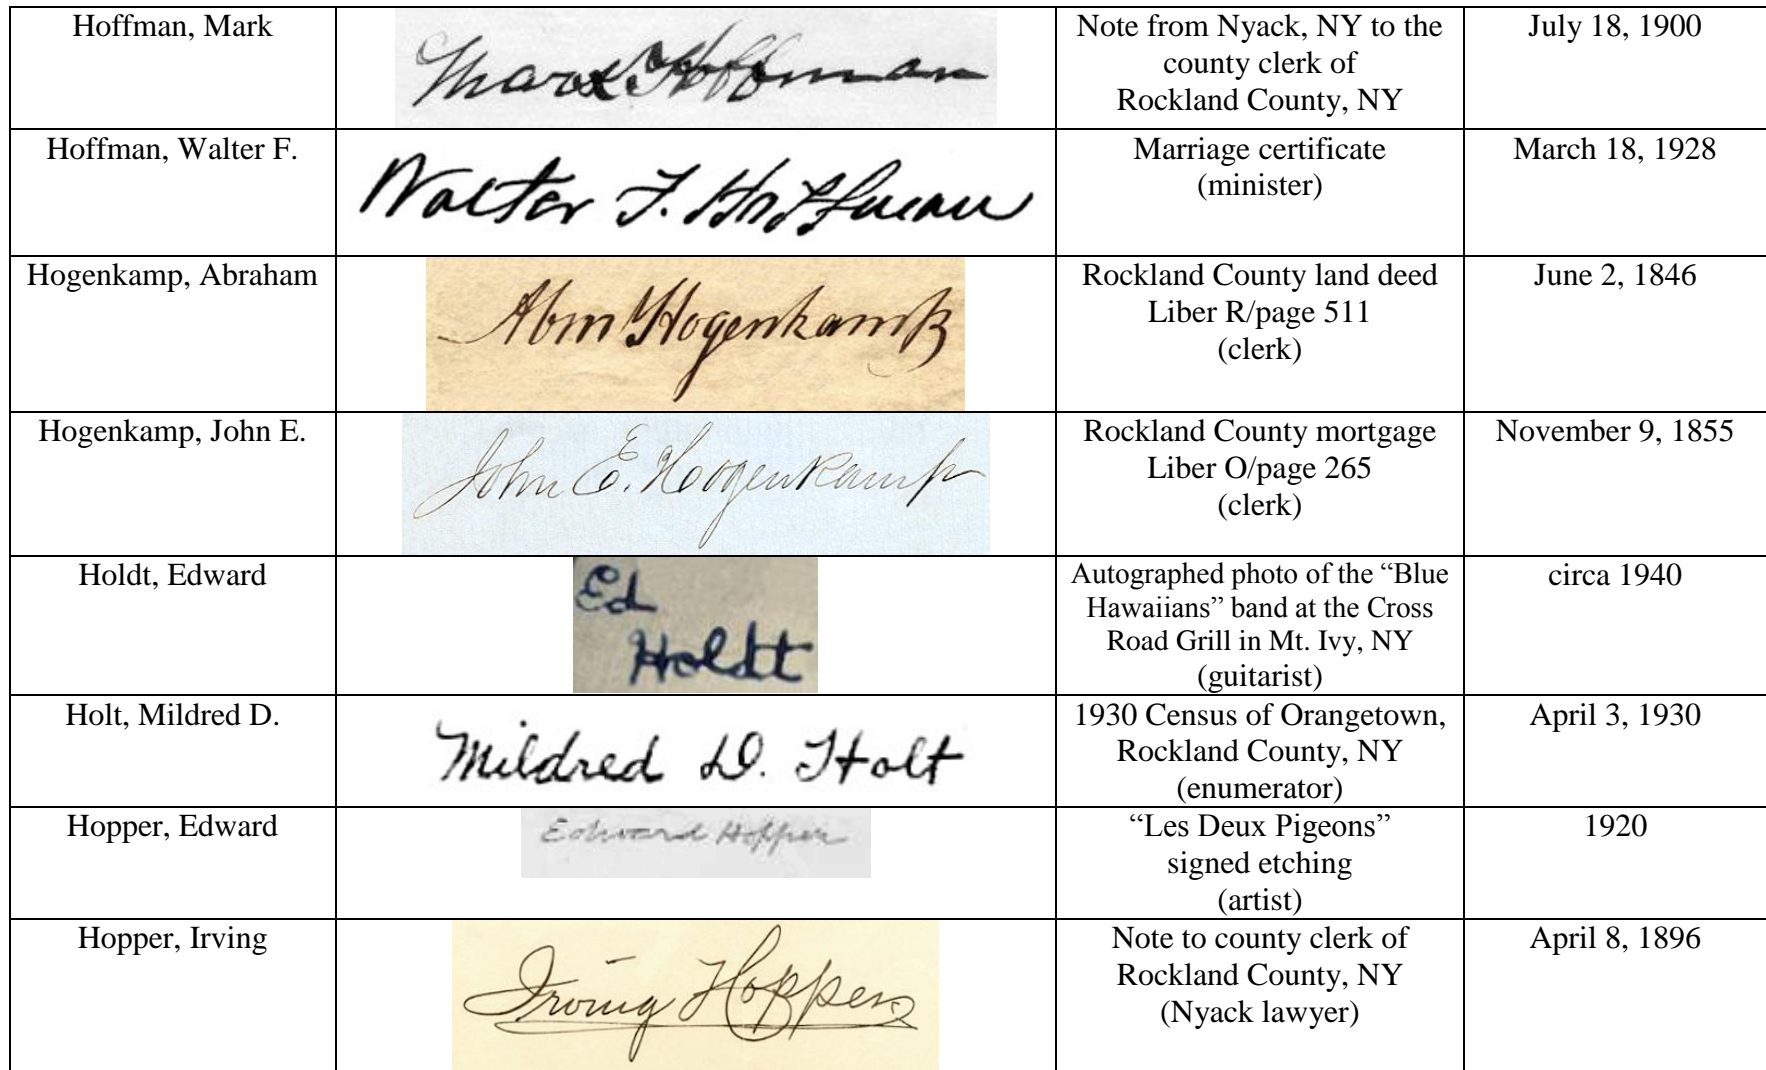 Hoffman, Mark
Mark Hoffman
Note from Nyack, NY to the
county clerk of
Rockland County, NY
July 18, 1900
Hoffman, Walter F.
Walter F. Hoffman
Marriage certificate
(minister)
March 18, 1928
Hogenkamp, Abraham
Abm Hogenkamp
Rockland County land deed
Liber R/page 511
(clerk)
June 2, 1846
Hogenkamp, John E.
John E. Hogenkamp
Rockland County mortgage
Liber O/page 265
(clerk)
November 9, 1855
Holdt, Edward
Ed
Holdt
Autographed photo of the “Blue
Hawaiians” band at the Cross
Road Grill in Mt. Ivy, NY
(guitarist)
circa 1940
Holt, Mildred D.
Mildred D. Holt
1930 Census of Orangetown,
Rockland County, NY
(enumerator)
April 3, 1930
Hopper, Edward
Edward Hopper
“Les Deux Pigeons”
signed etching
(artist)
1920
Hopper, Irving
Irving Hopper
Note to county clerk of
Rockland County, NY
(Nyack lawyer)
April 8, 1896